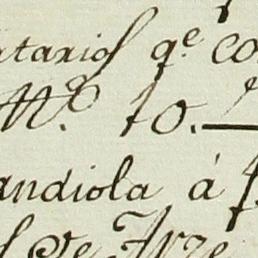 atarios qᵉ co
Mᵃ 10.
andiola á
de Arze